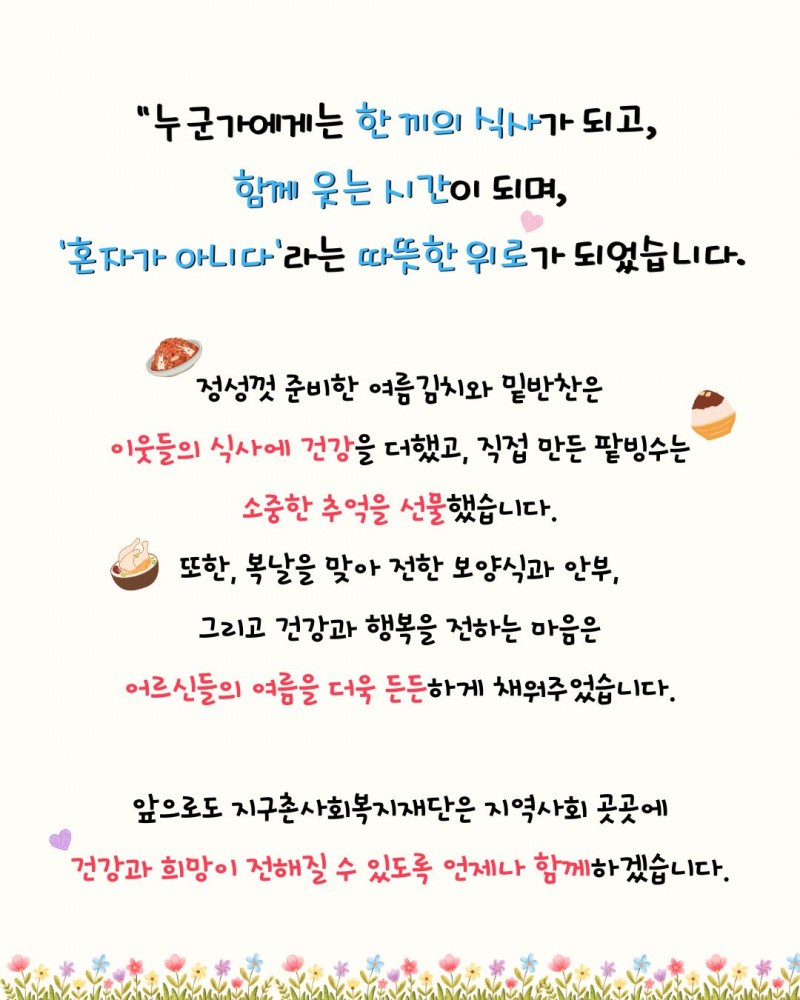 "누군가에게는 한 끼의 식사가 되고,
함께 웃는 시간이 되며,
'혼자가 아니다'라는 따뜻한 위로가 되었습니다.
정성껏 준비한 여름김치와 밑반찬은
이웃들의 식사에 건강을 더했고, 직접 만든 팥빙수는
소중한 추억을 선물했습니다.
또한, 복날을 맞아 전한 보양식과 안부,
그리고 건강과 행복을 전하는 마음은
어르신들의 여름을 더욱 든든하게 채워주었습니다.
앞으로도 지구촌사회복지재단은 지역사회 곳곳에
건강과 희망이 전해질 수 있도록 언제나 함께하겠습니다.